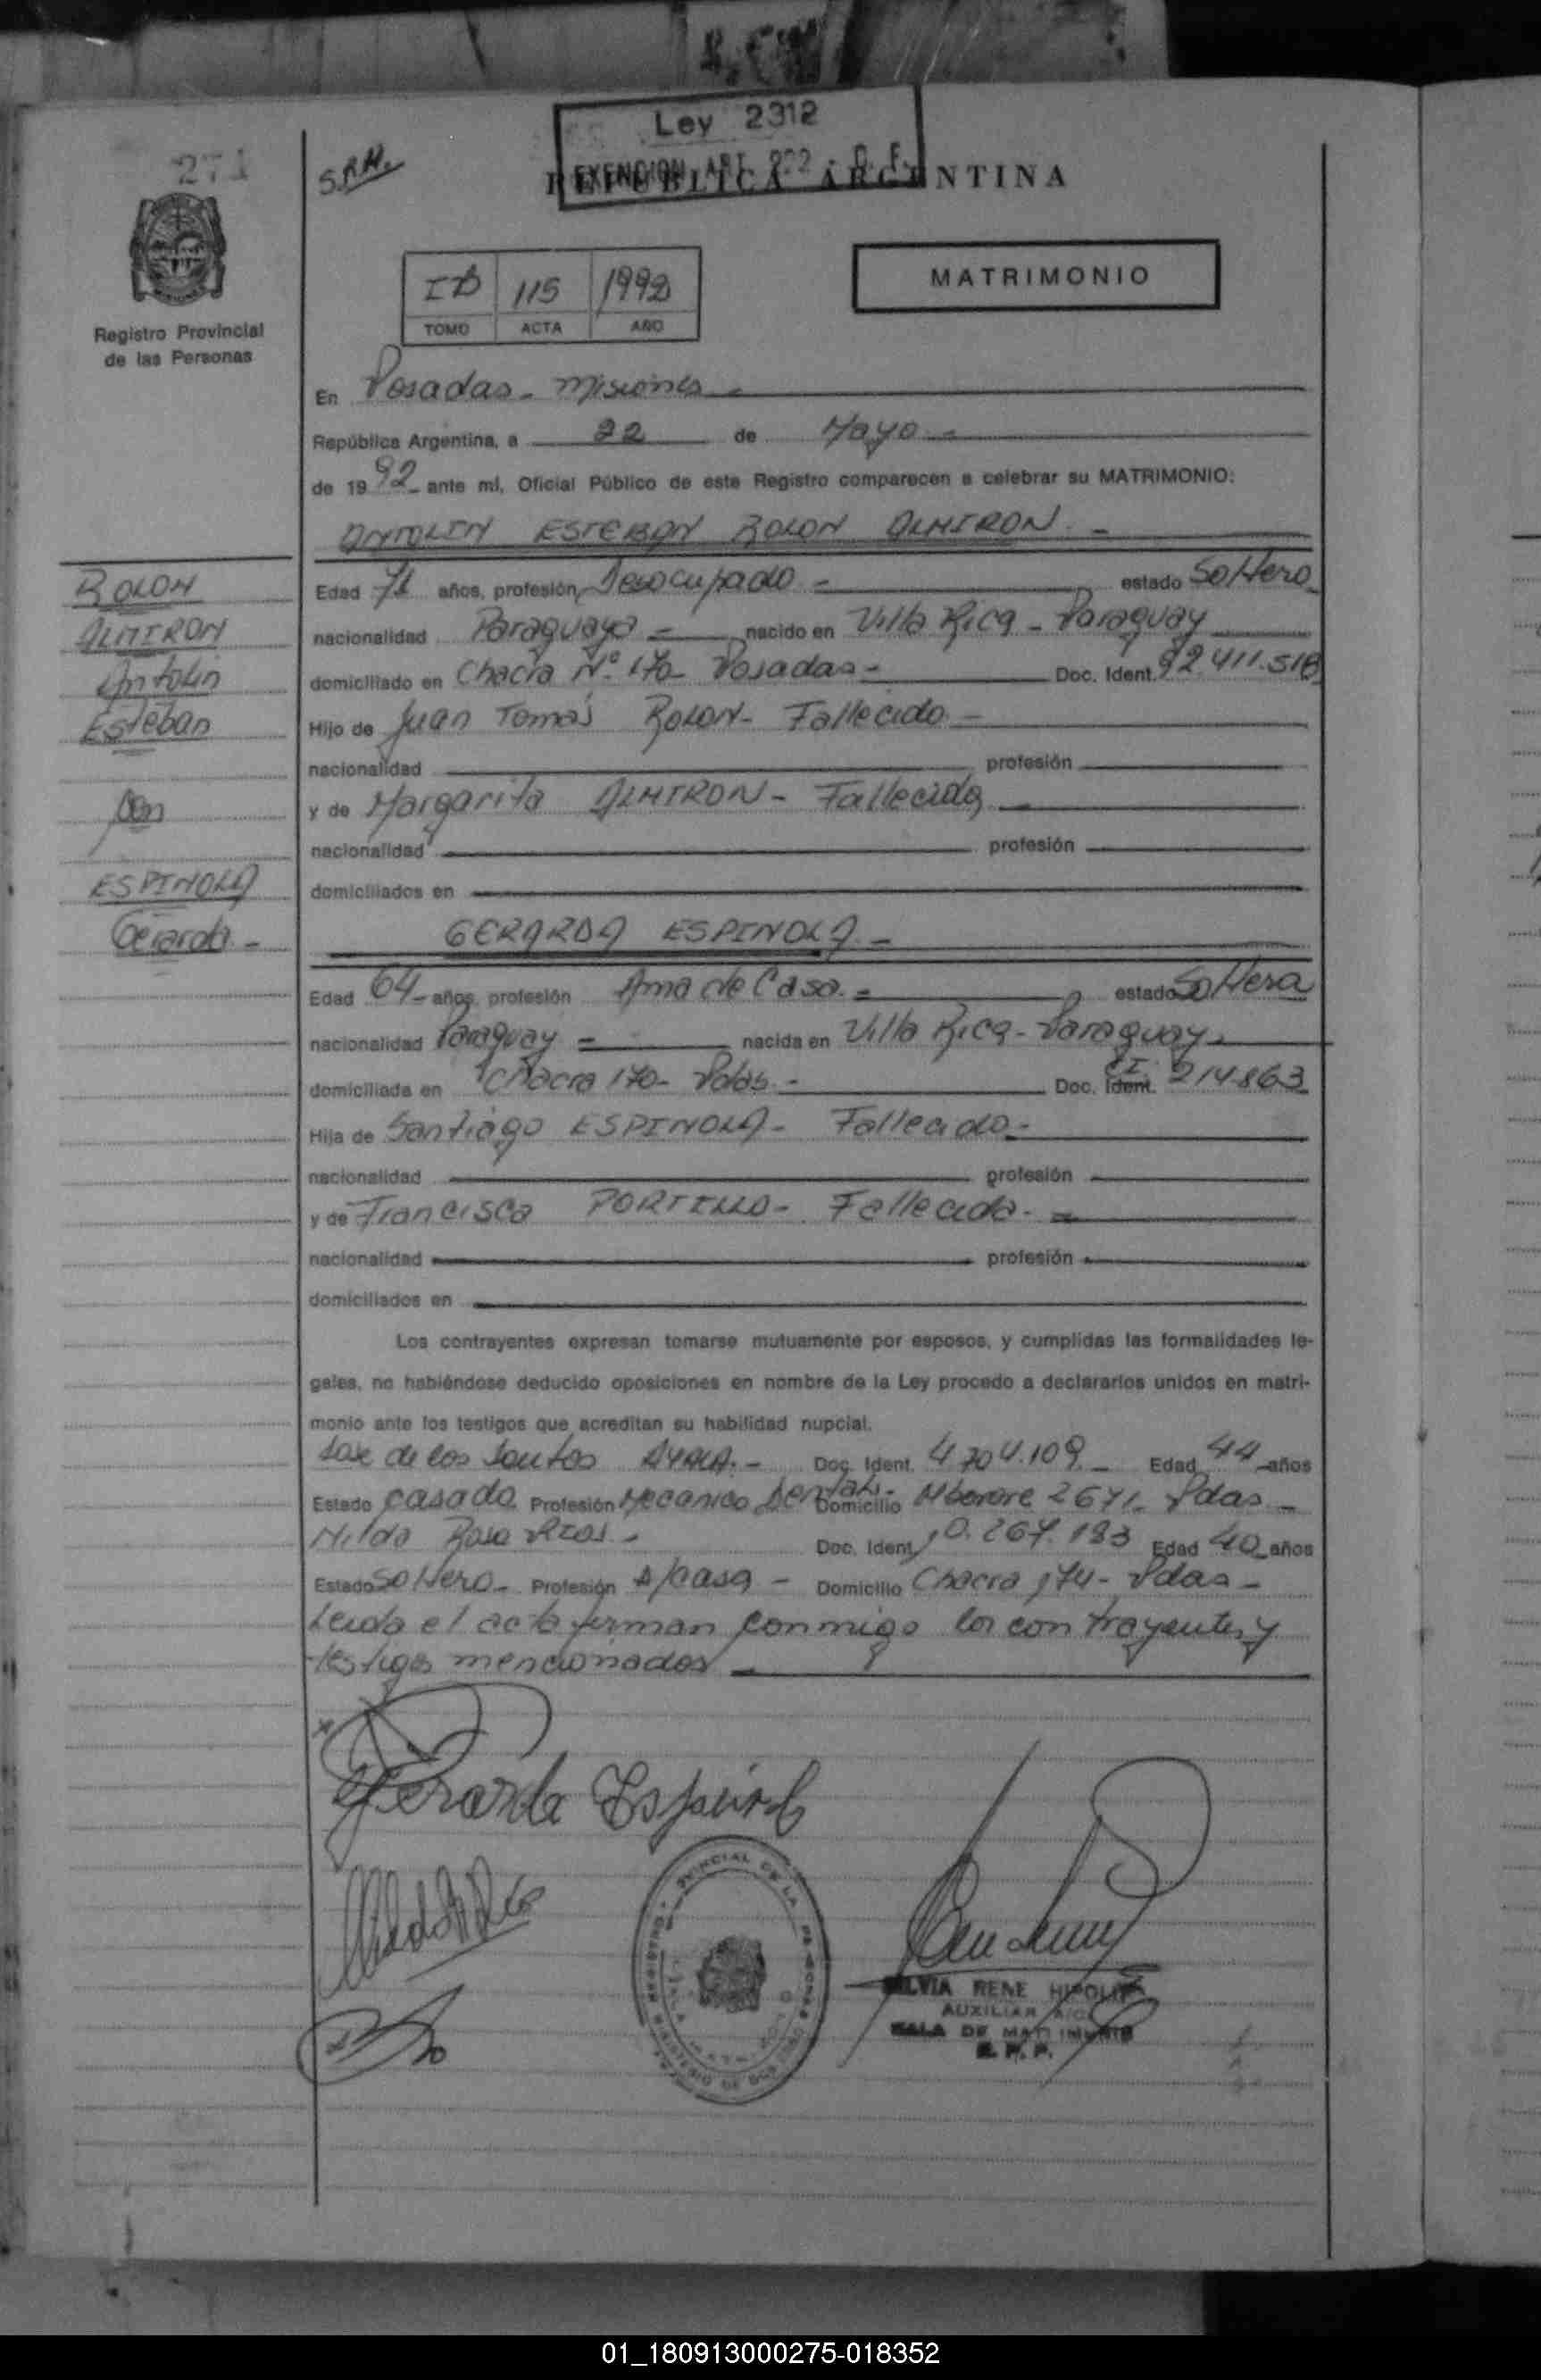 271
S.R.H.
Ley 2312
EXENCION ART.
REPUBLICA ARGENTINA
1992
115
TOMO ACTA AÑO
MATRIMONIO
Registro Provincial
de las Personas
En Posadas - Misiones -
República Argentina, a 22 de Mayo -
de 1992 ante mí, Oficial Público de este Registro comparecen a celebrar su MATRIMONIO:
ANTOLIN ESTEBAN ROLON ALMIRON. -
ROLON
ALMIRON
Antolin
Esteban
con
ESPINOLA
Gerarda -
Edad 71 años, profesión Desocupado - estado Soltero
nacionalidad Paraguaya - nacido en Villa Rica - Paraguay
domiciliado en Chacra Nº 170 Posadas - Doc. Ident. 92.411.518
Hijo de Juan Tomás ROLON - Fallecido -
nacionalidad profesión
y de Margarita ALMIRON - Fallecida -
nacionalidad profesión
domiciliados en
GERARDA ESPINOLA -
Edad 64 años, profesión Ama de Casa. - estado Soltera
nacionalidad Paraguay - nacida en Villa Rica - Paraguay -
domiciliada en Chacra 170 - Pdas. - Doc. Ident. CI 214.863
Hija de Santiago ESPINOLA - Fallecido -
nacionalidad profesión
y de Francisca PORTILLO - Fallecida. -
nacionalidad profesión
domiciliados en
Los contrayentes expresan tomarse mutuamente por esposos, y cumplidas las formalidades le-
gales, no habiéndose deducido oposiciones en nombre de la Ley procedo a declararlos unidos en matri-
monio ante los testigos que acreditan su habilidad nupcial.
Jose de los Santos AYALA. - Doc. Ident. 4.704.109 - Edad 44 años
Estado casado Profesión Mecanico Dental. - Domicilio Mborore 2671 - Pdas -
Nilda Rosa Rios. - Doc. Ident. 10.267.183 Edad 40 años
Estado Soltero - Profesión A/casa - Domicilio Chacra 174 - Pdas -
Leida el acta firman conmigo los contrayentes y
testigos mencionados
Gerarda Espinola
SILVIA RENE HIPOLITO
AUXILIAR
SALA DE MATRIMONIO
R. P. P.
01_180913000275-018352